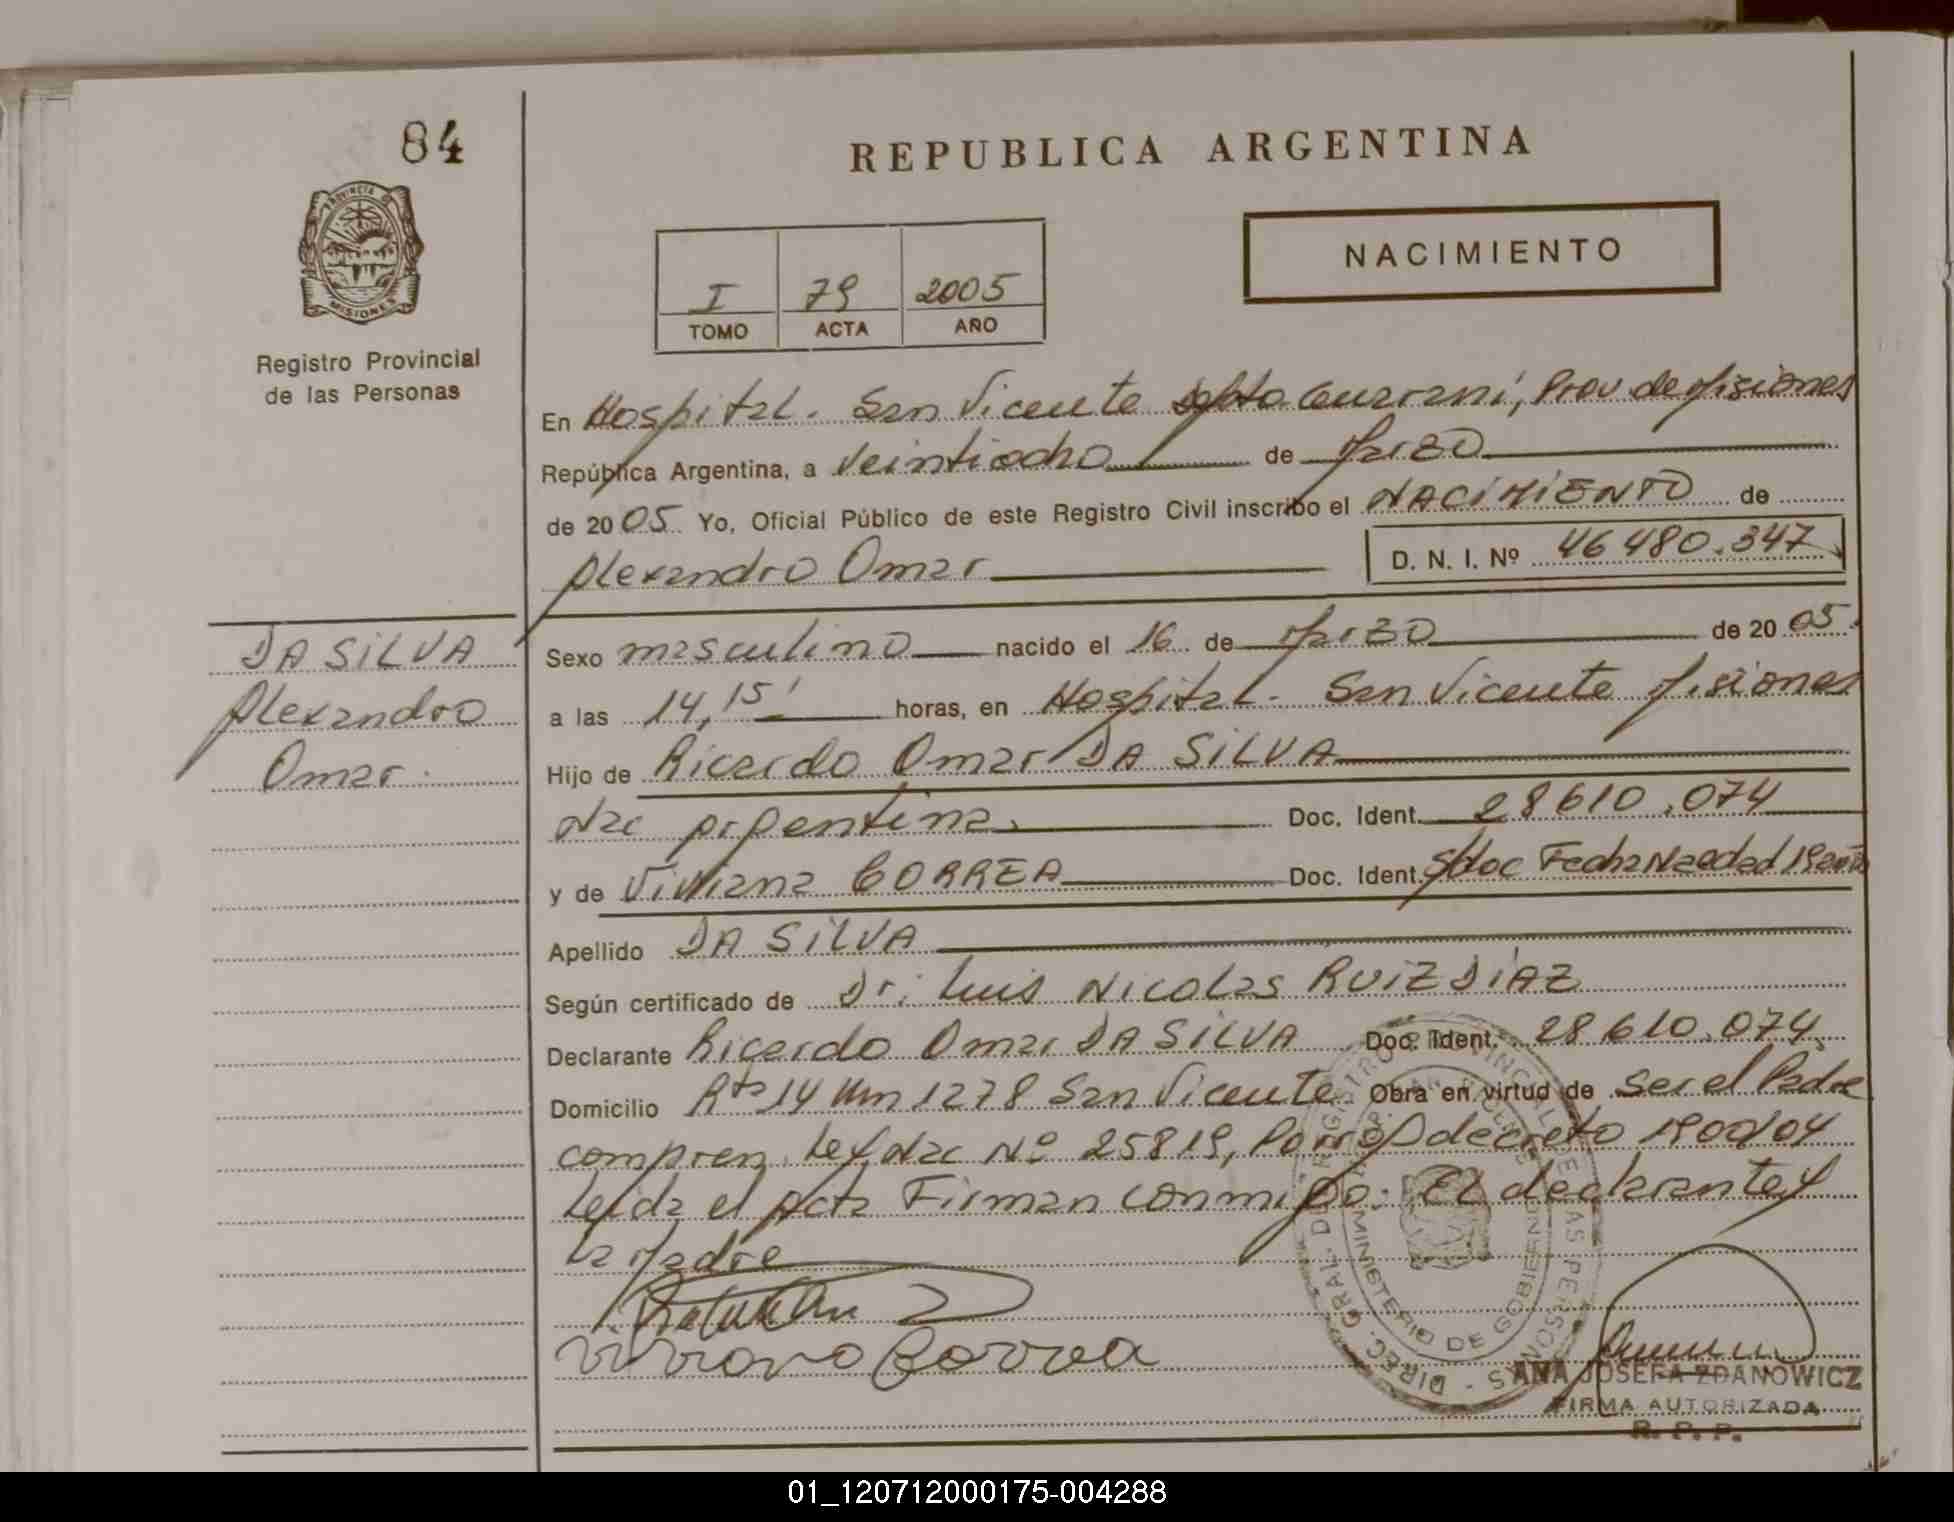 84
REPUBLICA ARGENTINA
PROVINCIA DE
MISIONES
Registro Provincial
de las Personas
I 79 2005
TOMO ACTA AÑO
NACIMIENTO
En Hospital. San Vicente dpto Guaraní, Prov de Misiones
República Argentina, a veintiocho de Marzo
de 2005 Yo, Oficial Público de este Registro Civil inscribo el NACIMIENTO de
Alexandro Omar D. N. I. Nº 46480.347
DA SILVA
Alexandro
Omar
Sexo masculino nacido el 16 de Marzo de 2005.
a las 14,15' horas, en Hospital - San Vicente Misiones
Hijo de Ricardo Omar DA SILVA
Nac Argentina. Doc. Ident. 28610.074
y de Viviana CORREA Doc. Ident. S/doc Fecha Nac edad 19 años
Apellido DA SILVA
Según certificado de Dr: Luis Nicolas RUIZ DÍAZ
Declarante Ricardo Omar DA SILVA Doc. Ident. 28610.074.
Domicilio Rta 14 Km 1278 San Vicente. Obra en virtud de ser el Padre
compren. Ley Nac Nº 25819, Prorrog decreto 1900/04
Leida el Acta Firman conmigo: El declarante y
La Madre
Viviana Correa
DIREC. GRAL. DE REGISTRO PROVINCIAL DE LAS PERSONAS
MINISTERIO DE GOBIERNO
ANA JOSEFA ZDANOWICZ
FIRMA AUTORIZADA
R. P. P.
01_120712000175-004288